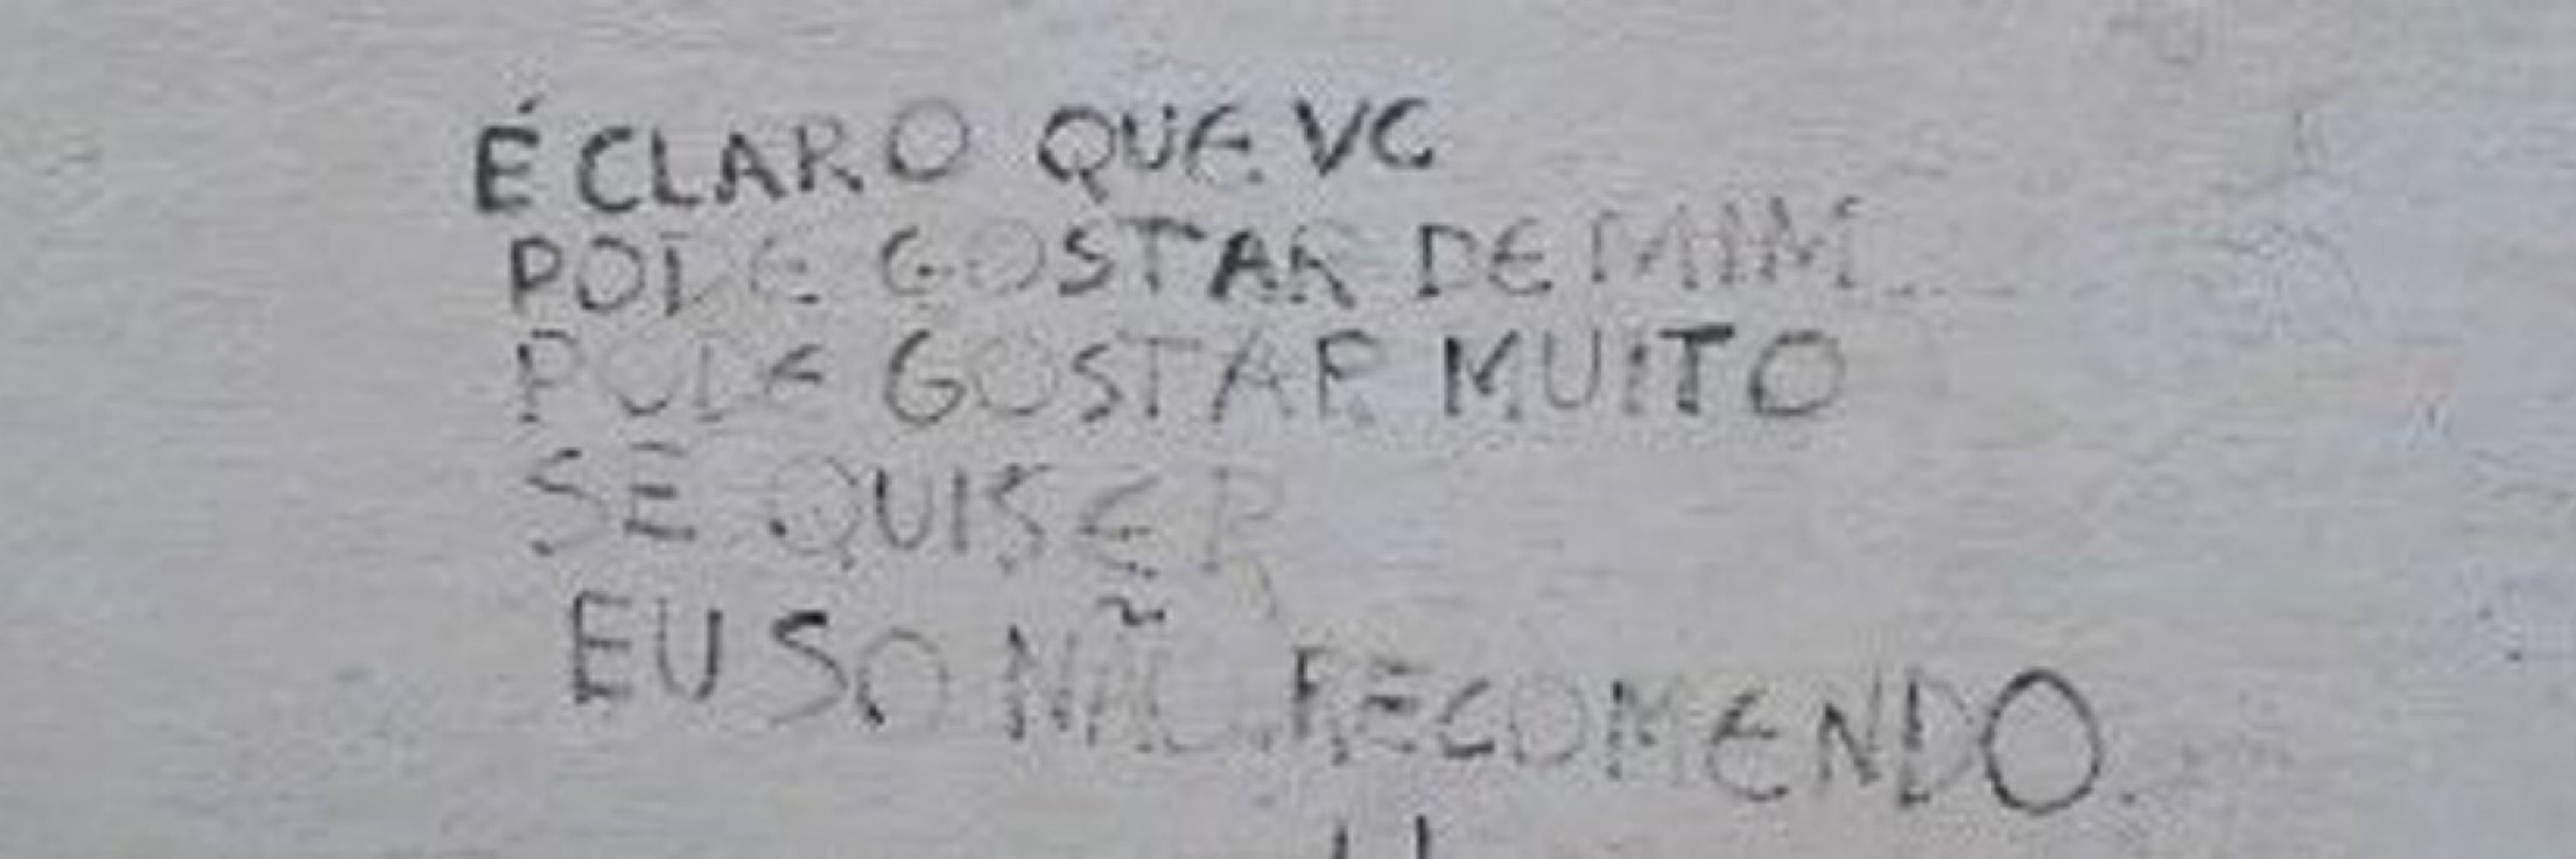 É CLARO QUE VC
PODE GOSTAR DE MIM...
PODE GOSTAR MUITO
SE QUISER
EU SO NÃO RECOMENDO.